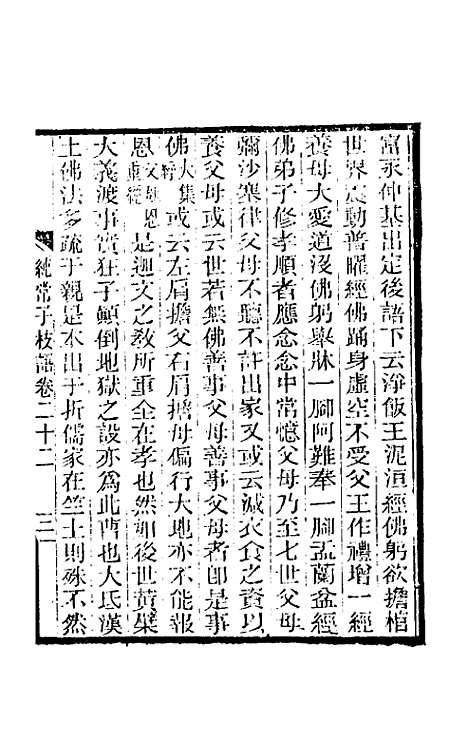 富永仲基出定後語下云淨飯王泥洹經佛躬欲擔棺
世界震動普曜經佛踊身虛空不受父王作禮增一經
養母大愛道沒佛躬舉牀一腳阿難奉一腳盂蘭盆經
佛弟子修孝順者應念念中常憶父母乃至七世父母
彌沙塞律父母不聽不許出家又或云減衣食之資以
養父母或云世若無佛善事父母善事父母者卽是事
佛大集經或云左肩擔父右肩擔母偏行大地亦不能報
恩父母恩重經是迦文之敎所重全在孝也然如後世黃檗
大義渡事實狂子顚倒地獄之設亦爲此曹也大氐漢
土佛法多疏于親是本出于折儒家在竺土則殊不然
純常子枝語卷二十二
三